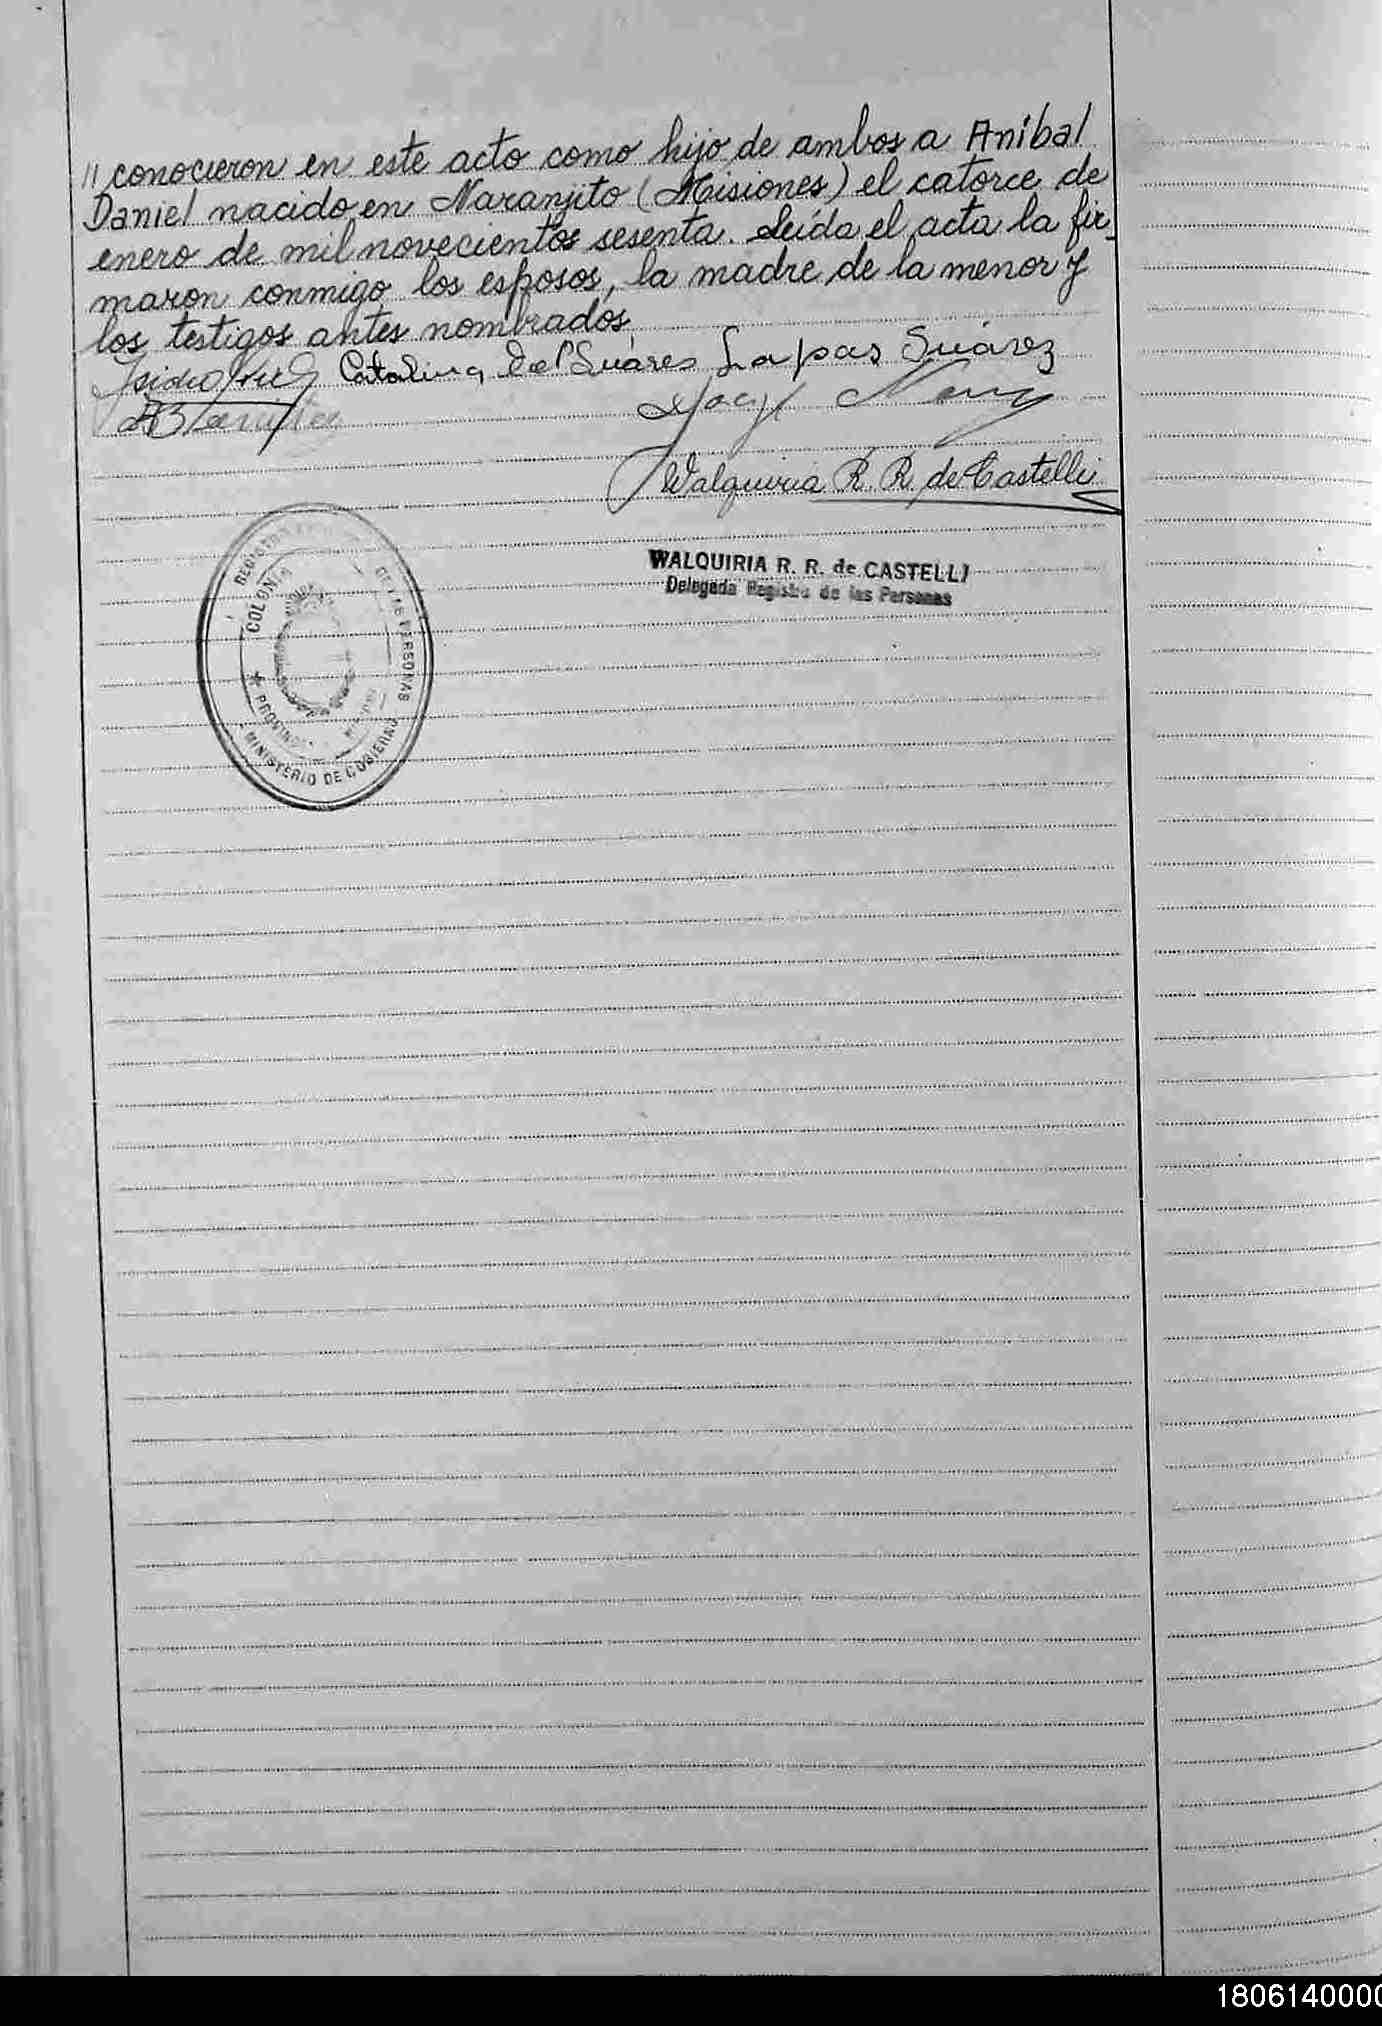 // conocieron en este acto como hijo de ambos a Aníbal
Daniel nacido en Naranjito (Misiones) el catorce de
enero de mil novecientos sesenta. Leída el acta la fir-
maron conmigo los esposos, la madre de la menor y
los testigos antes nombrados
Isidro Catalina Suáres Lapas Suárez
Walquiria R. R. de Castelli
WALQUIRIA R. R. de CASTELLI
Delegada Registro de las Personas
REGISTRO DE LAS PERSONAS
COLONIA
PROVINCIA
MINISTERIO DE GOBIERNO
1806140000